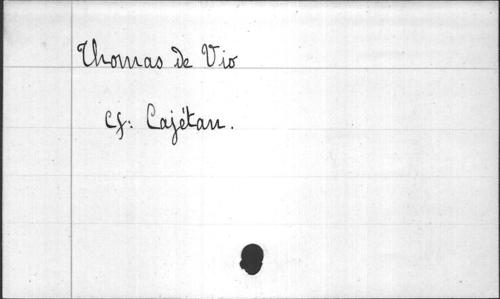 Thomas de Vio
Cf: Cajétan.